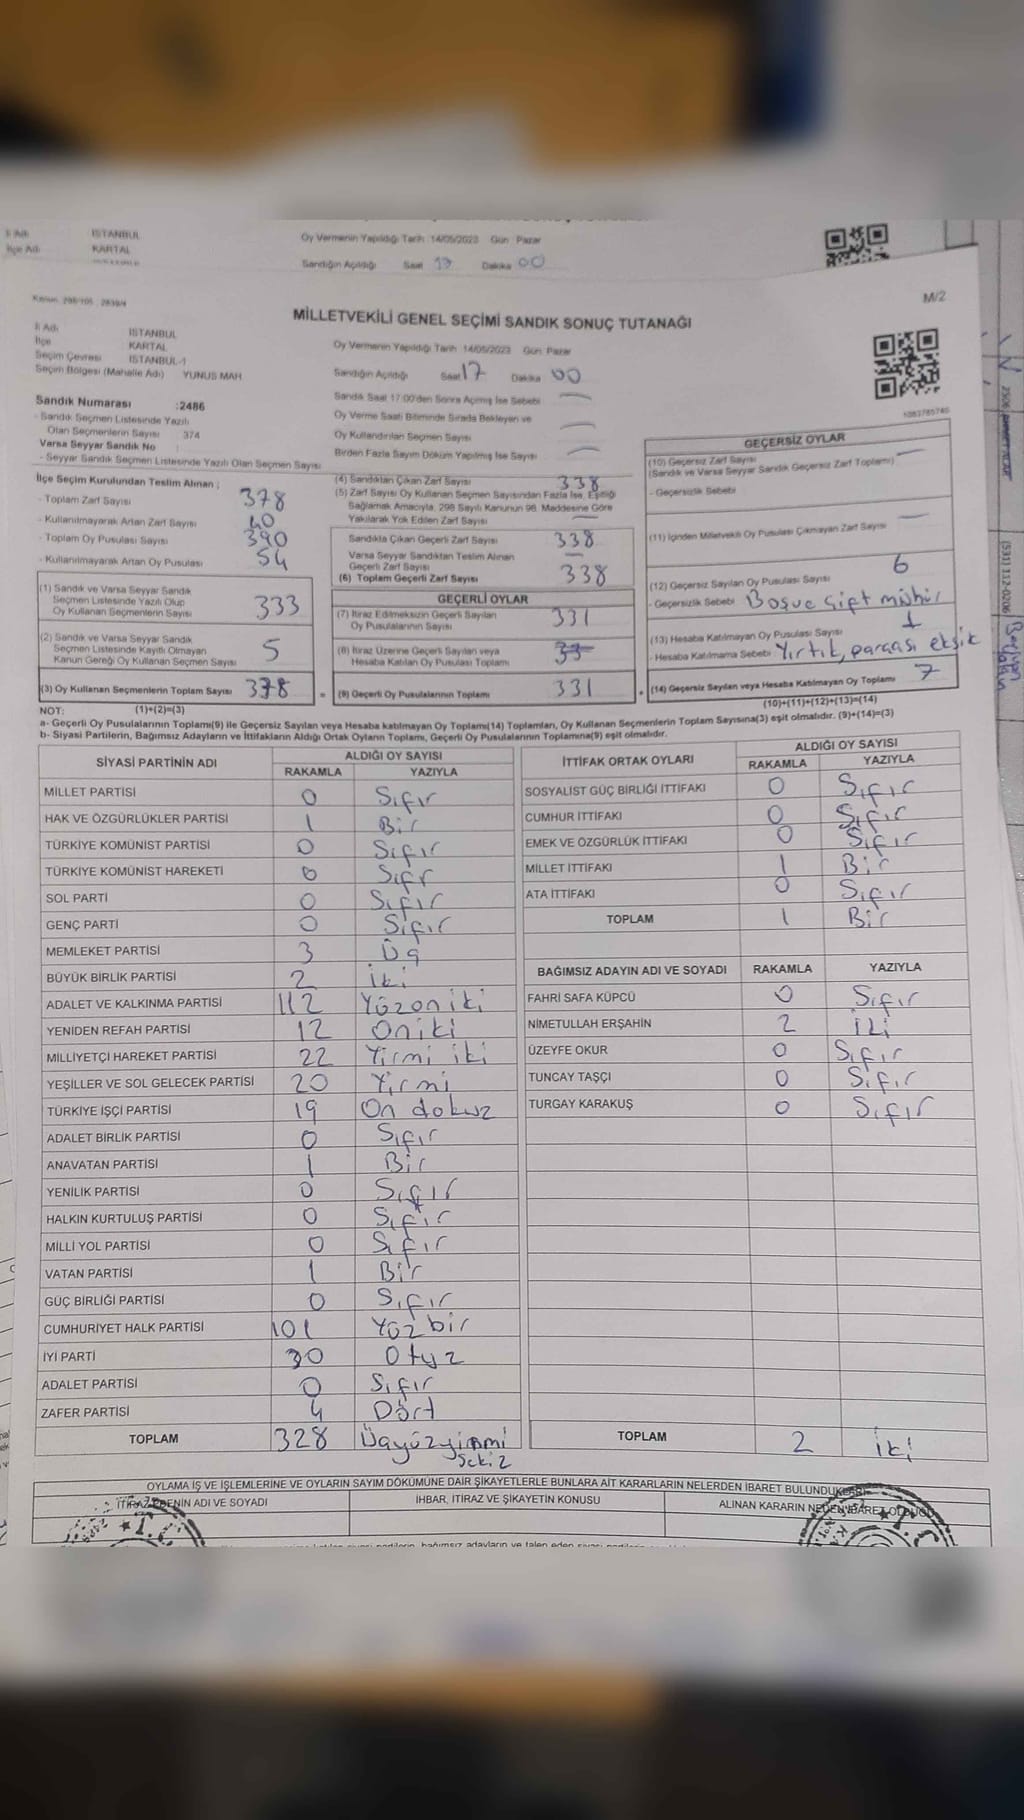 İl Adı İSTANBUL Oy Vermenin Yapıldığı Tarih :14/05/2023 Gün : Pazar
İlçe Adı KARTAL
Sandığın Açıldığı Saat 17 Dakika 00
M/2
MİLLETVEKİLİ GENEL SEÇİMİ SANDIK SONUÇ TUTANAĞI
İl Adı İSTANBUL
İlçe KARTAL
Seçim Çevresi İSTANBUL-1
Seçim Bölgesi (Mahalle Adı) YUNUS MAH.
Oy Vermenin Yapıldığı Tarih :14/05/2023 Gün: Pazar
Sandığın Açıldığı Saat 17 Dakika 00
Sandık Saat 17:00'den Sonra Açılmış İse Sebebi —
Oy Verme Saati Bitiminde Sırada Bekleyen ve
Oy Kullandırılan Seçmen Sayısı —
Birden Fazla Sayım Döküm Yapılmış İse Sayısı —
Sandık Numarası :2486
- Sandık Seçmen Listesinde Yazılı
Olan Seçmenlerin Sayısı : 374
Varsa Seyyar Sandık No :
- Seyyar Sandık Seçmen Listesinde Yazılı Olan Seçmen Sayısı
İlçe Seçim Kurulundan Teslim Alınan ;
- Toplam Zarf Sayısı 378
- Kullanılmayarak Artan Zarf Sayısı 40
- Toplam Oy Pusulası Sayısı 390
- Kullanılmayarak Artan Oy Pusulası 54
(1) Sandık ve Varsa Seyyar Sandık
Seçmen Listesinde Yazılı Olup
Oy Kullanan Seçmenlerin Sayısı 333
(2) Sandık ve Varsa Seyyar Sandık
Seçmen Listesinde Kayıtlı Olmayan
Kanun Gereği Oy Kullanan Seçmen Sayısı 5
(3) Oy Kullanan Seçmenlerin Toplam Sayısı 338
(1)+(2)=(3)
(4) Sandıktan Çıkan Zarf Sayısı 338
(5) Zarf Sayısı Oy Kullanan Seçmen Sayısından Fazla İse, Eşitliği
Sağlamak Amacıyla, 298 Sayılı Kanunun 98. Maddesine Göre
Yakılarak Yok Edilen Zarf Sayısı —
Sandıkta Çıkan Geçerli Zarf Sayısı 338
Varsa Seyyar Sandıktan Teslim Alınan
Geçerli Zarf Sayısı —
(6) Toplam Geçerli Zarf Sayısı 338
GEÇERLİ OYLAR
(7) İtiraz Edilmeksizin Geçerli Sayılan
Oy Pusulalarının Sayısı 331
(8) İtiraz Üzerine Geçerli Sayılan veya
Hesaba Katılan Oy Pusulası Toplamı
= (9) Geçerli Oy Pusulalarının Toplamı 331
GEÇERSİZ OYLAR
(10) Geçersiz Zarf Sayısı
(Sandık ve Varsa Seyyar Sandık Geçersiz Zarf Toplamı) —
- Geçersizlik Sebebi
(11) İçinden Milletvekili Oy Pusulası Çıkmayan Zarf Sayısı —
(12) Geçersiz Sayılan Oy Pusulası Sayısı 6
- Geçersizlik Sebebi Boş ve çift mühür
(13) Hesaba Katılmayan Oy Pusulası Sayısı 1
- Hesaba Katılmama Sebebi Yırtık, parçası eksik
+ (14) Geçersiz Sayılan veya Hesaba Katılmayan Oy Toplamı 7
(10)+(11)+(12)+(13)=(14)
NOT:
a- Geçerli Oy Pusulalarının Toplamı(9) ile Geçersiz Sayılan veya Hesaba katılmayan Oy Toplamı(14) Toplamları, Oy Kullanan Seçmenlerin Toplam Sayısına(3) eşit olmalıdır. (9)+(14)=(3)
b- Siyasi Partilerin, Bağımsız Adayların ve İttifakların Aldığı Ortak Oyların Toplamı, Geçerli Oy Pusulalarının Toplamına(9) eşit olmalıdır.
SİYASİ PARTİNİN ADI ALDIĞI OY SAYISI
RAKAMLA YAZIYLA
MİLLET PARTİSİ 0 Sıfır
HAK VE ÖZGÜRLÜKLER PARTİSİ 1 Bir
TÜRKİYE KOMÜNİST PARTİSİ 0 Sıfır
TÜRKİYE KOMÜNİST HAREKETİ 0 Sıfr
SOL PARTİ 0 Sıfır
GENÇ PARTİ 0 Sıfır
MEMLEKET PARTİSİ 3 Üç
BÜYÜK BİRLİK PARTİSİ 2 iki
ADALET VE KALKINMA PARTİSİ 112 Yüzoniki
YENİDEN REFAH PARTİSİ 12 Oniki
MİLLİYETÇİ HAREKET PARTİSİ 22 Yirmi iki
YEŞİLLER VE SOL GELECEK PARTİSİ 20 Yirmi
TÜRKİYE İŞÇİ PARTİSİ 19 On dokuz
ADALET BİRLİK PARTİSİ 0 Sıfır
ANAVATAN PARTİSİ 1 Bir
YENİLİK PARTİSİ 0 Sıfır
HALKIN KURTULUŞ PARTİSİ 0 Sıfır
MİLLİ YOL PARTİSİ 0 Sıfır
VATAN PARTİSİ 1 Bir
GÜÇ BİRLİĞİ PARTİSİ 0 Sıfır
CUMHURİYET HALK PARTİSİ 101 Yüz bir
İYİ PARTİ 30 Otuz
ADALET PARTİSİ 0 Sıfır
ZAFER PARTİSİ 4 Dört
TOPLAM 328 Üçyüzyirmi
Sekiz
İTTİFAK ORTAK OYLARI ALDIĞI OY SAYISI
RAKAMLA YAZIYLA
SOSYALİST GÜÇ BİRLİĞİ İTTİFAKI 0 Sıfır
CUMHUR İTTİFAKI 0 Sıfır
EMEK VE ÖZGÜRLÜK İTTİFAKI 0 Sıfır
MİLLET İTTİFAKI 1 Bir
ATA İTTİFAKI 0 Sıfır
TOPLAM 1 Bir
BAĞIMSIZ ADAYIN ADI VE SOYADI RAKAMLA YAZIYLA
FAHRİ SAFA KÜPCÜ 0 Sıfır
NİMETULLAH ERŞAHİN 2 İki
ÜZEYFE OKUR 0 Sıfır
TUNCAY TAŞÇI 0 Sıfır
TURGAY KARAKUŞ 0 Sıfır
TOPLAM 2 iki
OYLAMA İŞ VE İŞLEMLERİNE VE OYLARIN SAYIM DÖKÜMÜNE DAİR ŞİKAYETLERLE BUNLARA AİT KARARLARIN NELERDEN İBARET BULUNDUKLARI
İTİRAZ EDENİN ADI VE SOYADI İHBAR, İTİRAZ VE ŞİKAYETİN KONUSU ALINAN KARARIN NEDEN İBARET OLDUĞU
T.C.